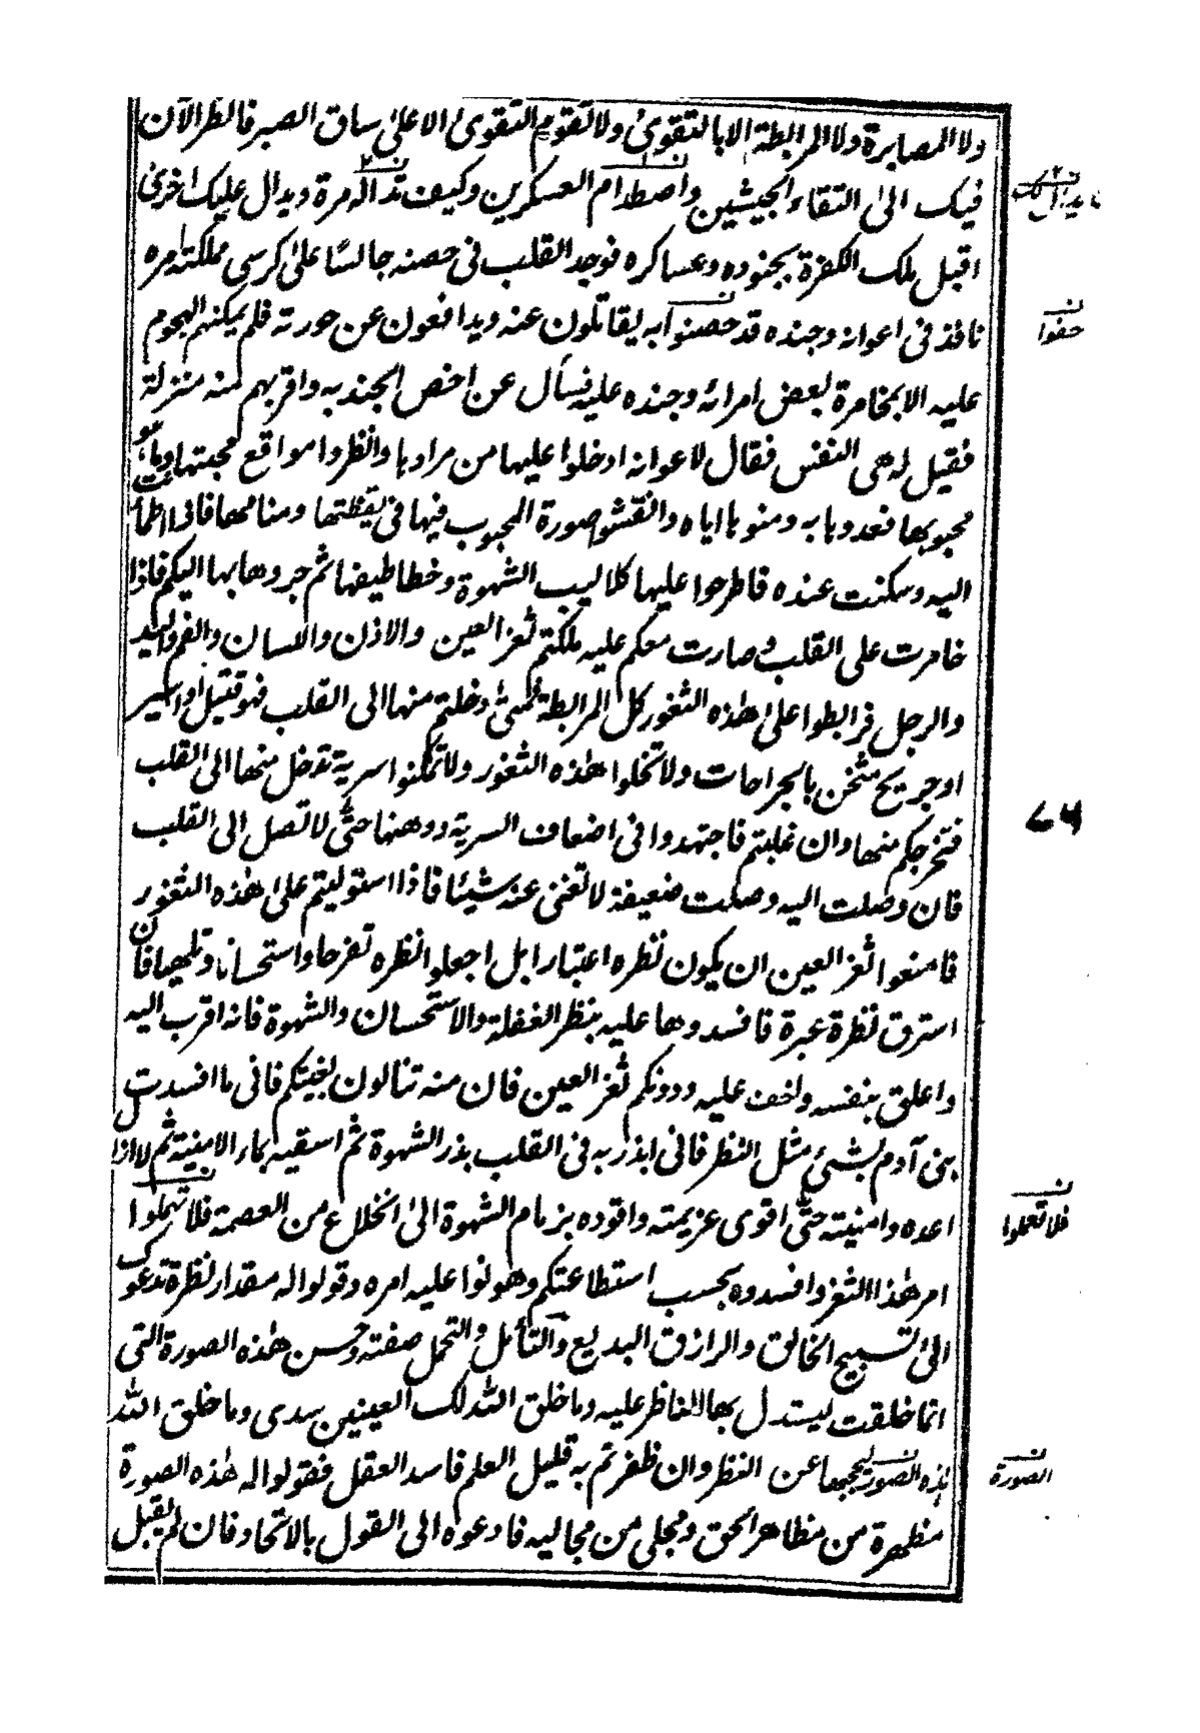 ولا المصابرة ولا المرابطة الا بالتقوى ولا تقوم التقوى الا على ساق الصبر فانظر الآن
فيك الى التقاء الجيشين واصطدام العسكرين وكيف تدال مرة ويدال عليك اخرى
ن٢ يدال لك
اقبل ملك الكفرة بجنوده وعساكره فوجد القلب فى حصنه جالسا على كرسى مملكته امره
نافذ فى اعوانه وجنده قد حصنوا به يقاتلون عنه ويدافعون عن حوزته فلم يمكنهم الهجوم
ن حفوا
عليه الا بمخامرة بعض امرائه وجنده عليه فسأل عن اخص الجند به واقربهم منه منزلة
فقيل له هى النفس فقال لاعوانه ادخلوا عليها من مرادها وانظروا مواقع محبتها وما هو
محبوبها فعدوها به ومنوها اياه وانقشوا صورة المحبوب فيها فى يقظتها ومنامها فاذا اطمأنت
اليه وسكنت عنده فاطرحوا عليها كلاليب الشهوة وخطاطيفها ثم جروها بها اليكم فاذا
خامرت على القلب وصارت معكم عليه ملكتم ثغر العين والاذن واللسان والفم واليد
والرجل فرابطوا على هذه الثغور كل المرابطة فمتى دخلتم منها الى القلب فهو قتيل او اسير
او جريح مثخن بالجراحات ولا تخلوا هذه الثغور ولا تمكنوا سرية تدخل منها الى القلب
فتخرجكم منها وان غلبتم فاجتهدوا فى اضعاف السرية ووهنها حتى لا تصل الى القلب
٧٦
فان وصلت اليه وصلت ضعيفة لا تغنى عنه شيئا فاذا استوليتم على هذه الثغور
فامنعوا ثغر العين ان يكون نظره اعتبارا بل اجعلوا نظره تفرجا واستحسانا وتلهيا فان
استرق نظرة عبرة فافسدوها عليه بنظر الغفلة والاستحسان والشهوة فانه اقرب اليه
واعلق بنفسه واخف عليه ودونكم ثغر العين فان منه تنالون بغيتكم فانى ما افسدت
بنى آدم بشئ مثل النظر فانى ابذر به فى القلب بذر الشهوة ثم اسقيه بماء الامنية ثم لا ازال
اعده وامنيته حتى اقوى عزيمته واقوده بزمام الشهوة الى انخلاع من العصمة فلا تهملوا
ن فلا تعملوا
امر هذا الثغر وافسدوه بحسب استطاعتكم وهونوا عليه امره وقولوا له مقدار نظرة تدعوك
الى تسبيح الخالق والرازق البديع والتأمل والتحمل صفته وحسن هذه الصورة التى
انما خلقت ليستدل بها الناظر عليه وما خلق الله لك العينين سدى وما خلق الله
هذه الصور ليحجبها عن النظر وان ظفرتم به قليل العلم فاسد العقل فقولوا له هذه الصورة
ن الصورة
مظهرة من مظاهر الحق ومجلى من مجاليه فادعوه الى القول بالاتحاد فان لم يقبل